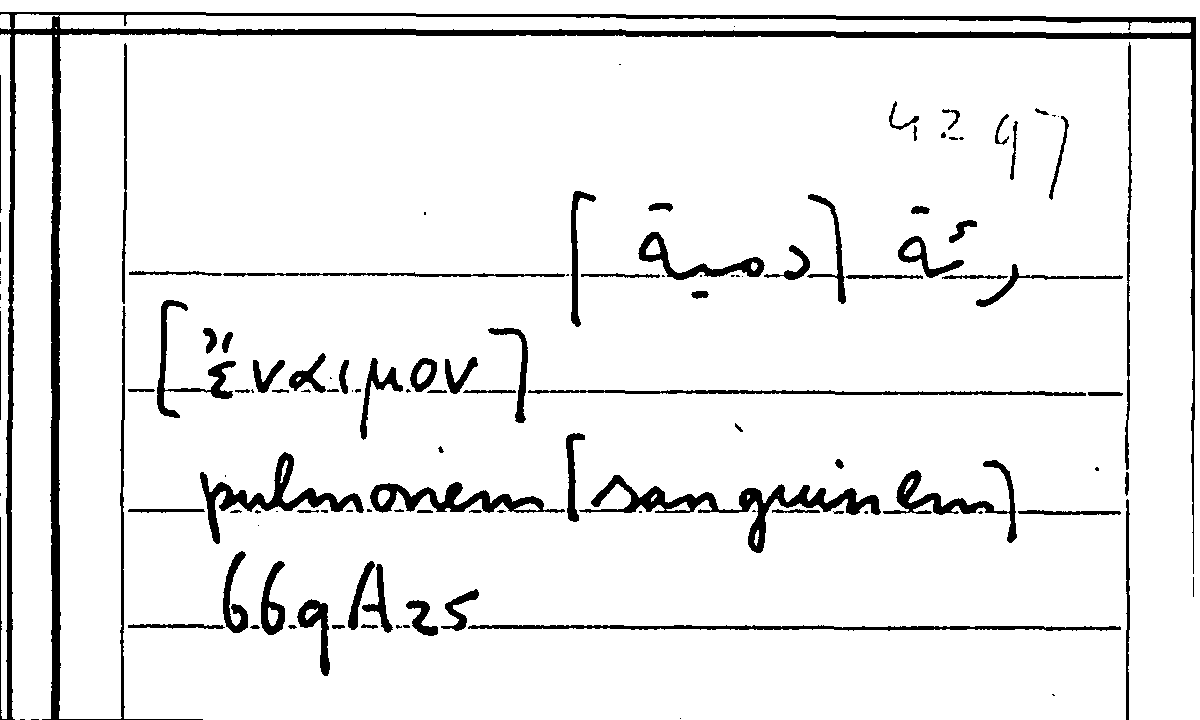 4297
[ἔναιμον]
pulmonem [sanguinem]
669A25